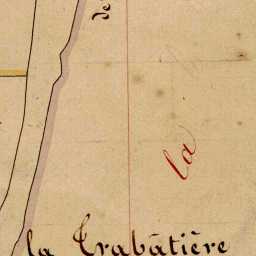 de
la
la Trabâtière